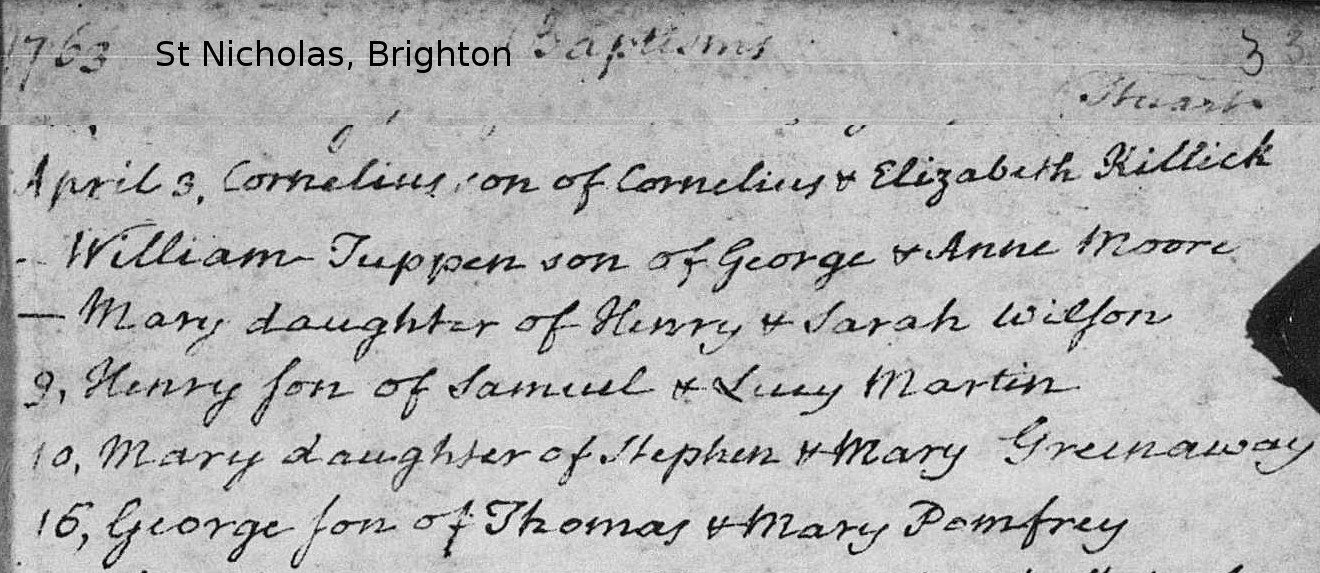 1763 St Nicholas, Brighton Baptisms 33
Stuart
April 3, Cornelius son of Cornelius & Elizabeth Killick
- William Tuppen son of George & Anne Moore
— Mary daughter of Henry & Sarah Wilson
9, Henry son of Samuel & Lucy Martin
10, Mary daughter of Stephen & Mary Greenaway
16, George son of Thomas & Mary Pomfrey